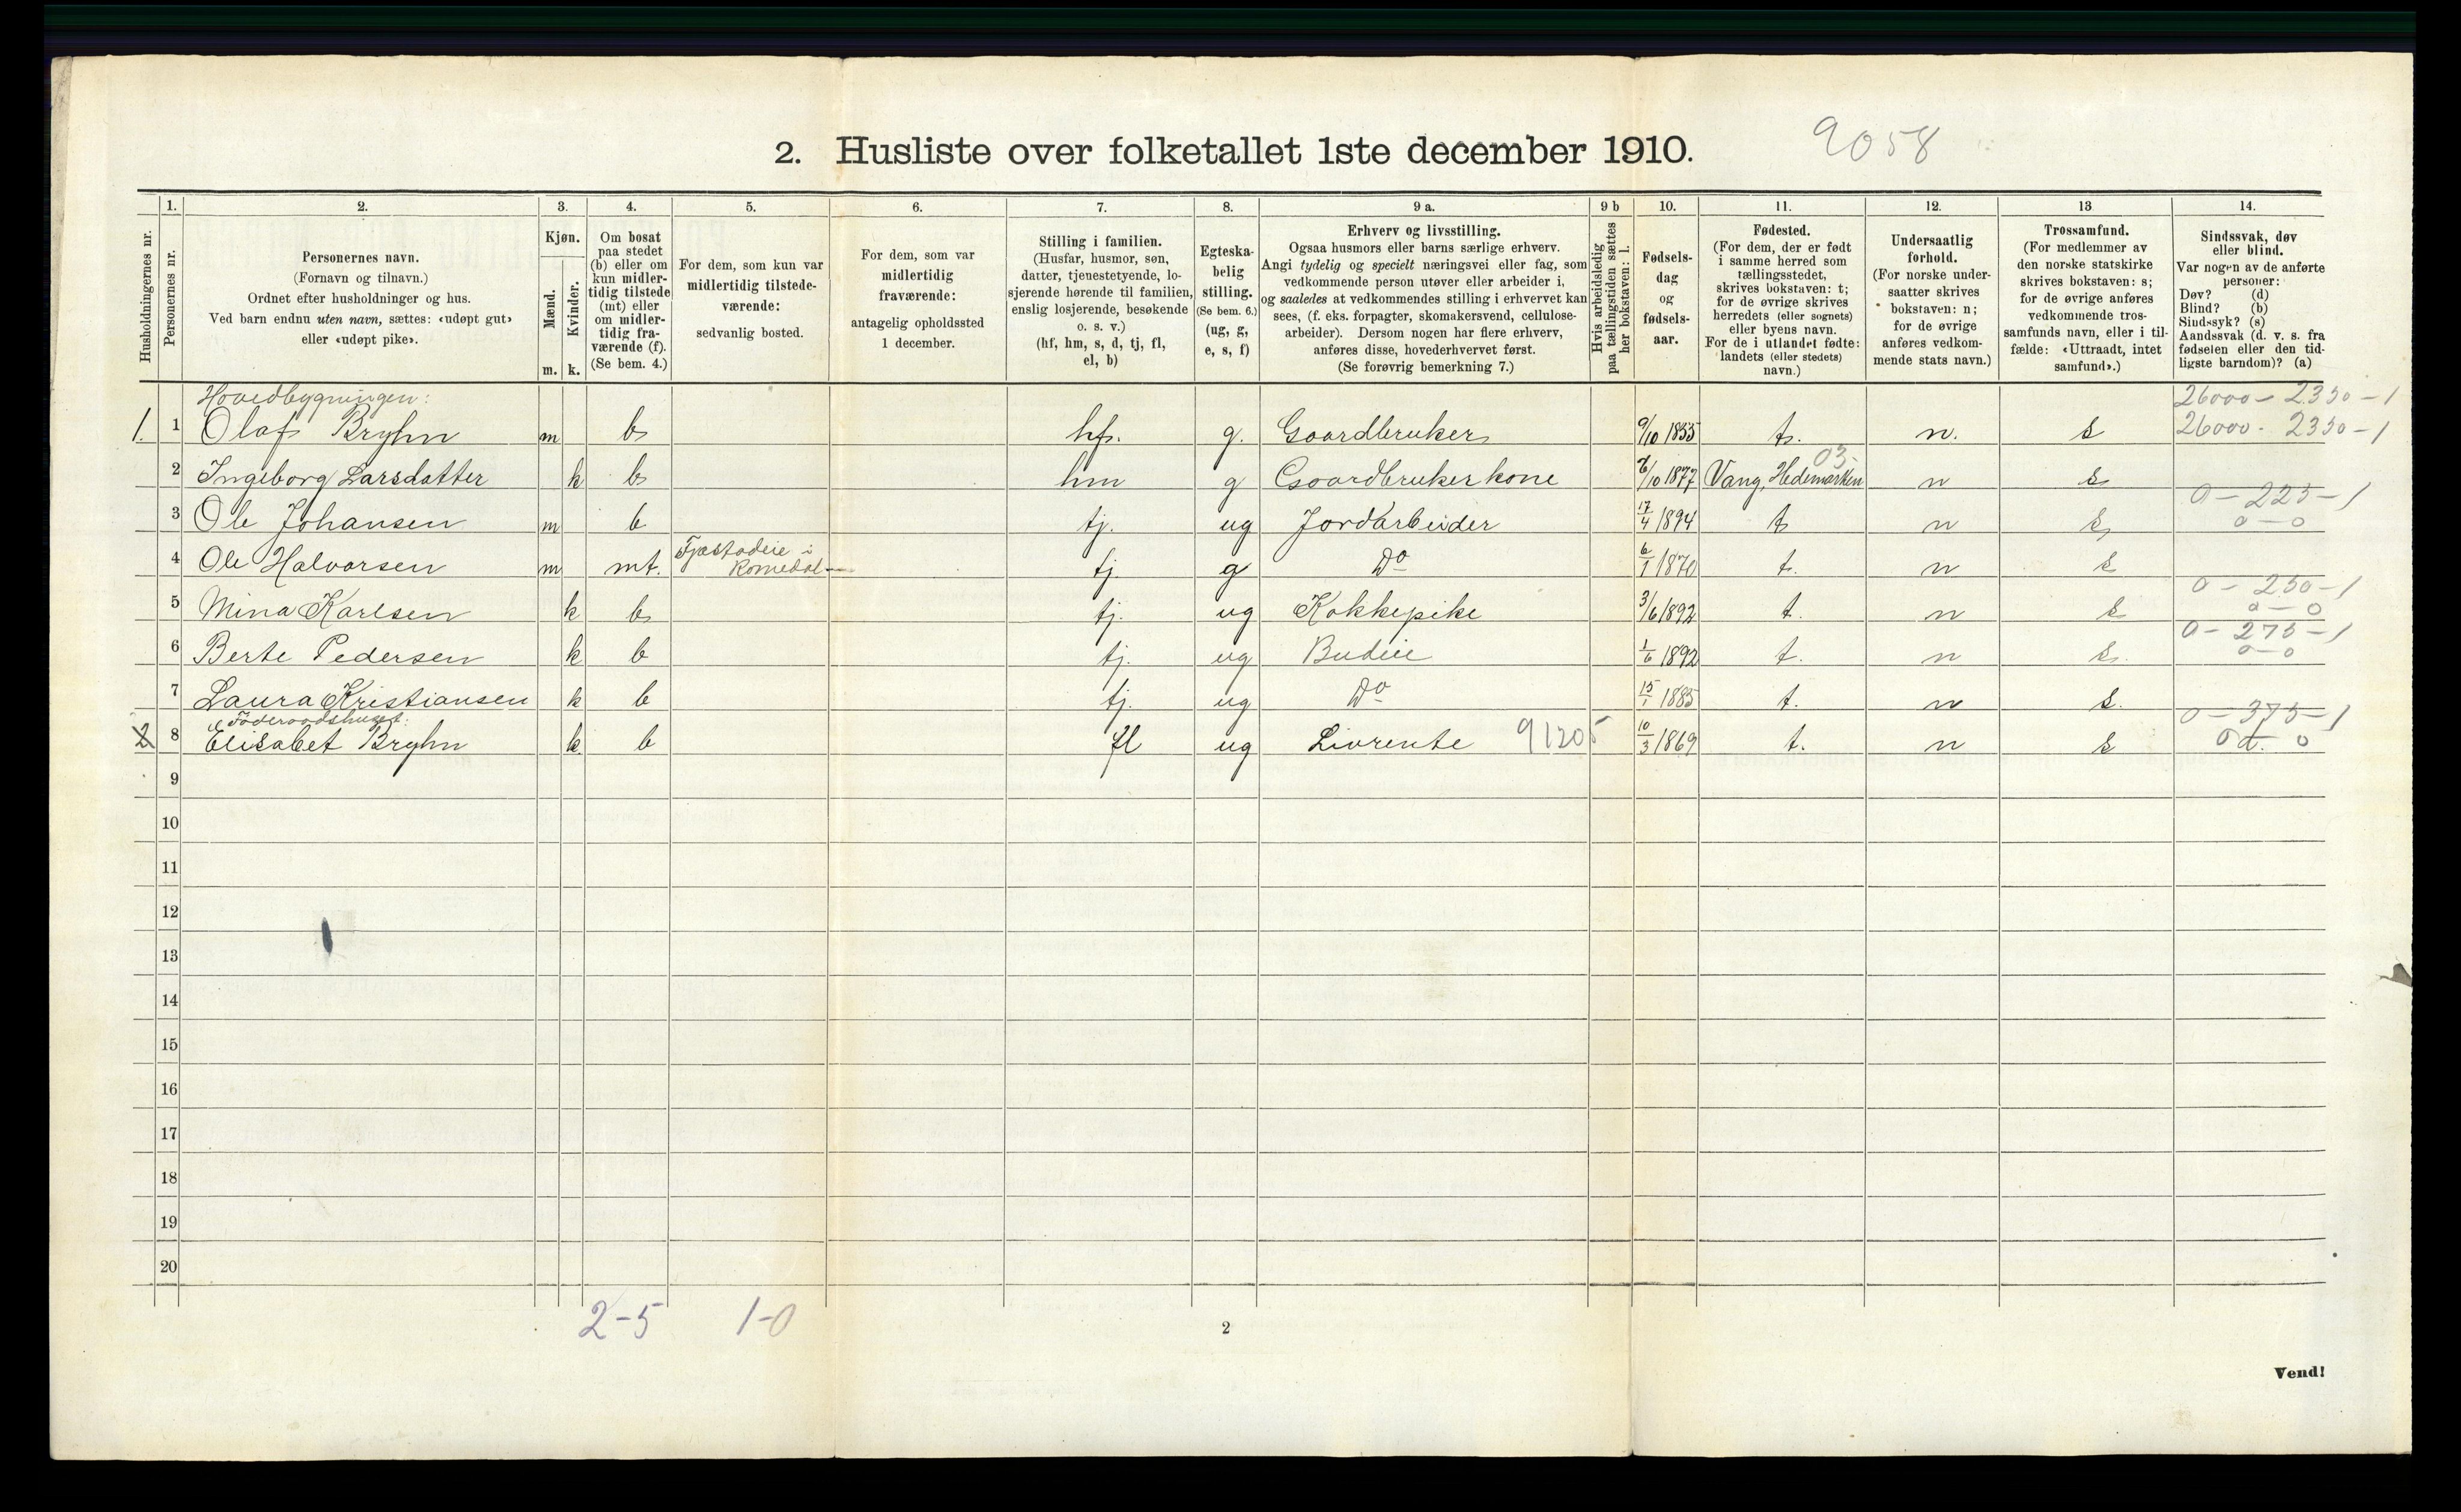 2. Husliste over folketallet 1ste december 1910. 9058
Husholdningernes nr.
1. Personernes nr.
2. Personernes navn.
(Fornavn og tilnavn.)
Ordnet efter husholdninger og hus.
Ved barn endnu uten navn, sættes: «udøpt gut»
eller «udøpt pike».
3. Kjøn.
Mænd. m.
Kvinder. k.
4. Om bosat
paa stedet
(b) eller om
kun midler-
tidig tilstede
(mt) eller
om midler-
tidig fra-
værende (f).
(Se bem. 4.)
5. For dem, som kun var
midlertidig tilstede-
værende:
sedvanlig bosted.
6. For dem, som var
midlertidig
fraværende:
antagelig opholdssted
1 december.
7. Stilling i familien.
(Husfar, husmor, søn,
datter, tjenestetyende, lo-
sjerende hørende til familien,
enslig losjerende, besøkende
o. s. v.)
(hf, hm, s, d, tj, fl,
el, b)
8. Egteska-
belig
stilling.
(Se bem. 6.)
(ug, g,
e, s, f)
9 a. Erhverv og livsstilling.
Ogsaa husmors eller barns særlige erhverv.
Angi tydelig og specielt næringsvei eller fag, som
vedkommende person utøver eller arbeider i,
og saaledes at vedkommendes stilling i erhvervet kan
sees, (f. eks. forpagter, skomakersvend, cellulose-
arbeider). Dersom nogen har flere erhverv,
anføres disse, hovederhvervet først.
(Se forøvrig bemerkning 7.)
9 b Hvis arbeidsledig
paa tællingstiden sættes
her bokstaven: l.
10. Fødsels-
dag
og
fødsels-
aar.
11. Fødested.
(For dem, der er født
i samme herred som
tællingsstedet,
skrives bokstaven: t;
for de øvrige skrives
herredets (eller sognets)
eller byens navn.
For de i utlandet fødte:
landets (eller stedets)
navn.)
12. Undersaatlig
forhold.
(For norske under-
saatter skrives
bokstaven: n;
for de øvrige
anføres vedkom-
mende stats navn.)
13 Trossamfund.
(For medlemmer av
den norske statskirke
skrives bokstaven: s;
for de øvrige anføres
vedkommende tros-
samfunds navn, eller i til-
fælde: «Uttraadt, intet
samfund».)
14. Sindssvak, døv
eller blind.
Var nogen av de anførte
personer:
Døv? (d)
Blind? (b)
Sindssyk? (s)
Aandssvak (d. v. s. fra
fødselen eller den tid-
ligste barndom)? (a)
Hovedbygningen: 26000 - 2350 - 1
1. 1 Olaf Bryhn m b hf. g. Gaardbruker 9/10 1855 t. n. s 26000 - 2350 - 1
2 Ingeborg Larsdatter k b hm g Gaardbrukerkone 1877 Vang, Hedemarken 03 n s
0 - 225 - 1
3 Ole Johansen m b tj. ug Jordarbeider 17/4 1894 t n s 0 - 0
Fjæstadeie i
4 Ole Halvorsen m mt. Romedal tj. g Do 6/1 1870 t. n s
0 - 250 - 1
5 Mina Karlsen k b tj. ug Kokkepike 3/6 1892 t. n s 0 - 0
0 - 275 - 1
6 Berte Pedersen k b tj. ug Budeie 1/6 1892 t. n s. 0 - 0
7 Laura Kristiansen k b tj. ug Do 15/1 1885 t. n s.
Føderaadshuset: 0 - 375 - 1
2 8 Elisabet Bryhn k b fl ug Livrente 91205 10/3 1869 t. n s 0 d. 0
9
10
11
12
13
14
15
16
17
18
19
20
2-5 1-0
2
Vend!